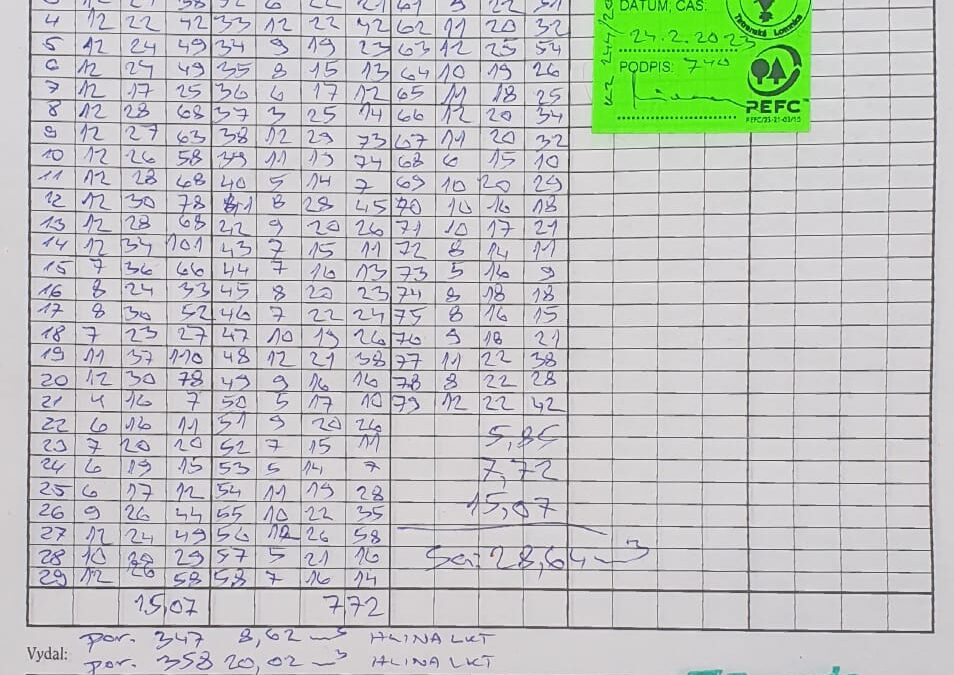 4 12 22 42 33 12 22 42 62 11 20 32
5 12 24 49 34 9 19 23 63 12 25 54
6 12 24 49 35 8 15 13 64 10 19 26
7 12 17 25 36 6 17 12 65 11 18 25
8 12 28 68 37 3 25 14 66 12 20 34
9 12 27 63 38 12 29 73 67 11 20 32
10 12 26 58 39 11 19 74 68 6 15 10
11 12 28 68 40 5 14 7 69 10 20 29
12 12 30 78 41 8 28 45 70 10 16 18
13 12 28 68 42 9 20 26 71 10 17 21
14 12 34 101 43 7 15 11 72 8 14 11
15 7 36 66 44 7 16 13 73 5 16 9
16 8 24 33 45 8 20 23 74 8 18 18
17 8 30 52 46 7 22 24 75 8 16 15
18 7 23 27 47 10 19 26 76 9 18 21
19 11 37 110 48 12 21 38 77 11 22 38
20 12 30 78 49 9 16 16 78 8 22 28
21 4 16 7 50 5 17 10 79 12 22 42
22 6 16 11 51 9 20 26
23 7 20 20 52 7 15 11
24 6 19 15 53 5 14 7
25 6 17 12 54 11 19 28
26 9 26 44 55 10 22 35
27 12 24 49 56 12 26 58
28 10 20 29 57 5 21 16
29 12 26 58 58 7 16 14
15,07 7,72
5,85
7,72
15,07
Sa: 28,64 m3
DÁTUM, ČAS:
24.2.2023
PODPIS: 740
Tatranská Lomnica
PEFC
Vydal:
por. 347 8,62 m3 HLINA LKT
por. 358 20,02 m3 HLINA LKT